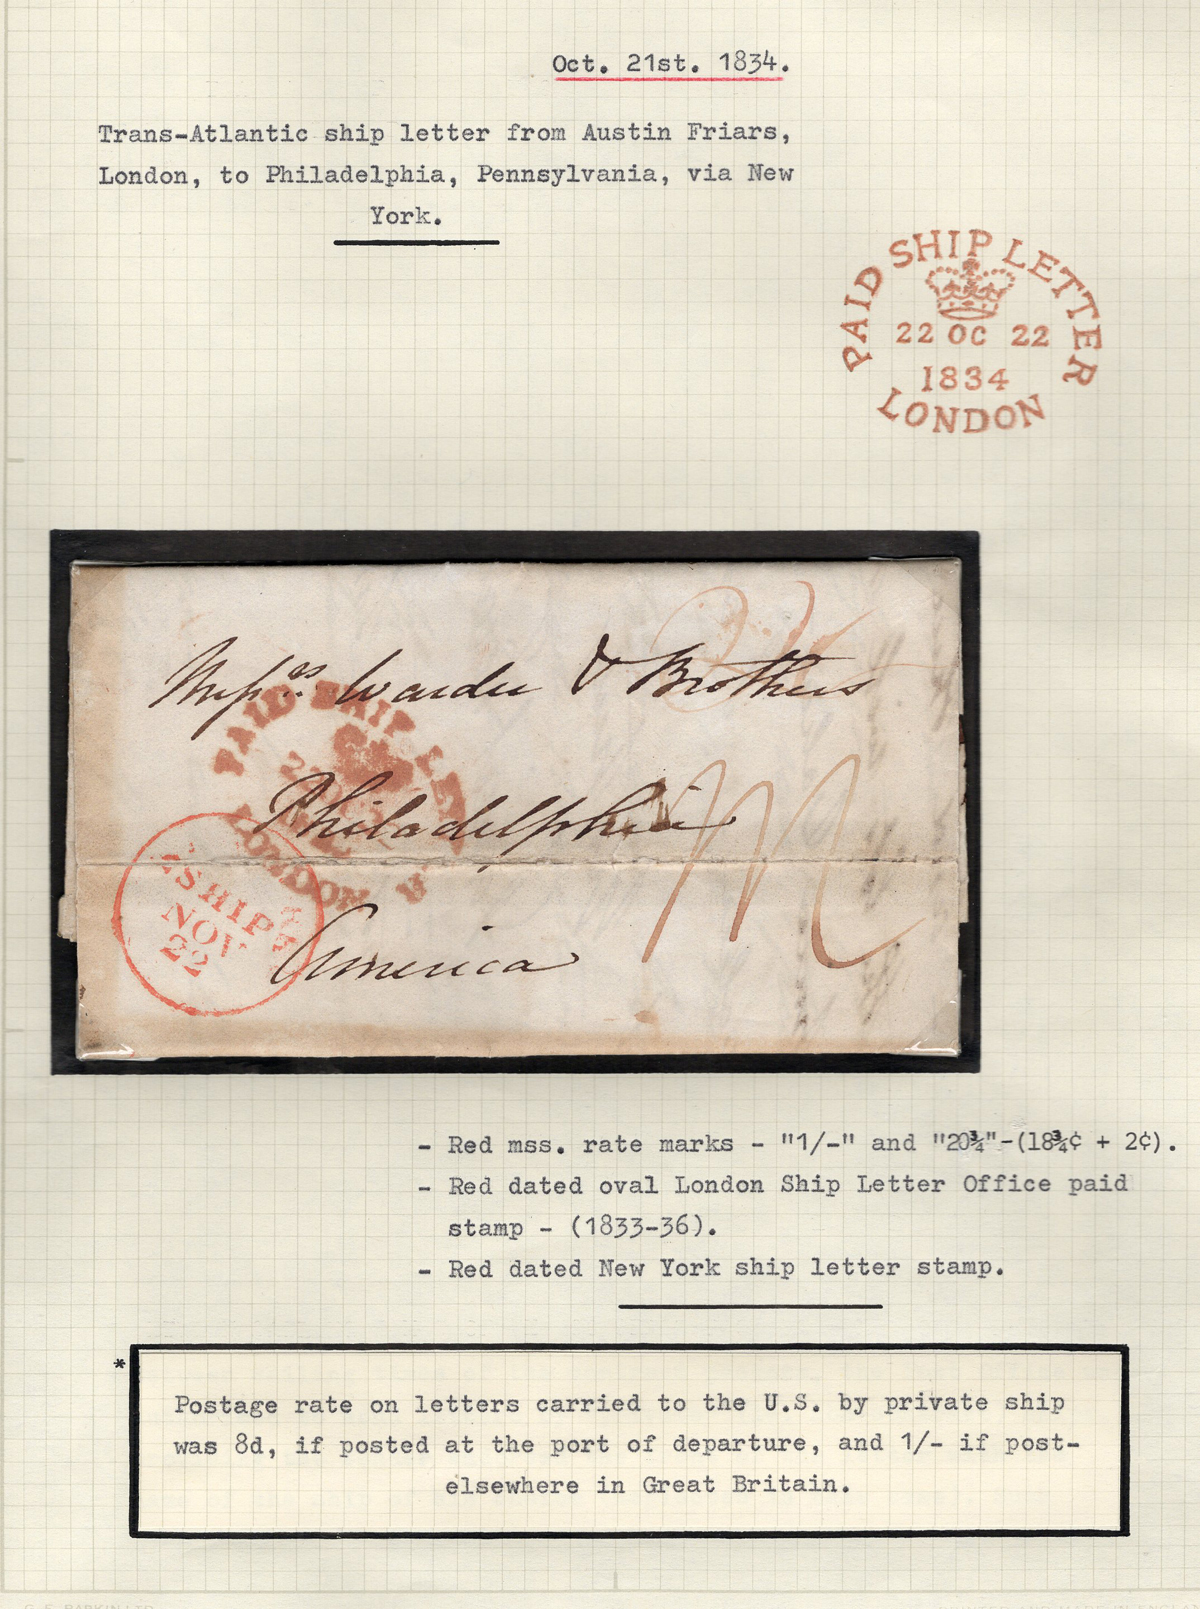 Oct. 21st. 1834.
Trans-Atlantic ship letter from Austin Friars,
London, to Philadelphia, Pennsylvania, via New
York.
PAID SHIP LETTER
22 OC 22
1834
LONDON
Messrs. Warder & Brothers
PAID SHIP LE
Philadelphia
LONDON
SHIP
NOV
22
America
- Red mss. rate marks - "1/-" and "20¾"-(18¾¢ + 2¢).
- Red dated oval London Ship Letter Office paid
stamp - (1833-36).
- Red dated New York ship letter stamp.
*
Postage rate on letters carried to the U.S. by private ship
was 8d, if posted at the port of departure, and 1/- if post-
elsewhere in Great Britain.